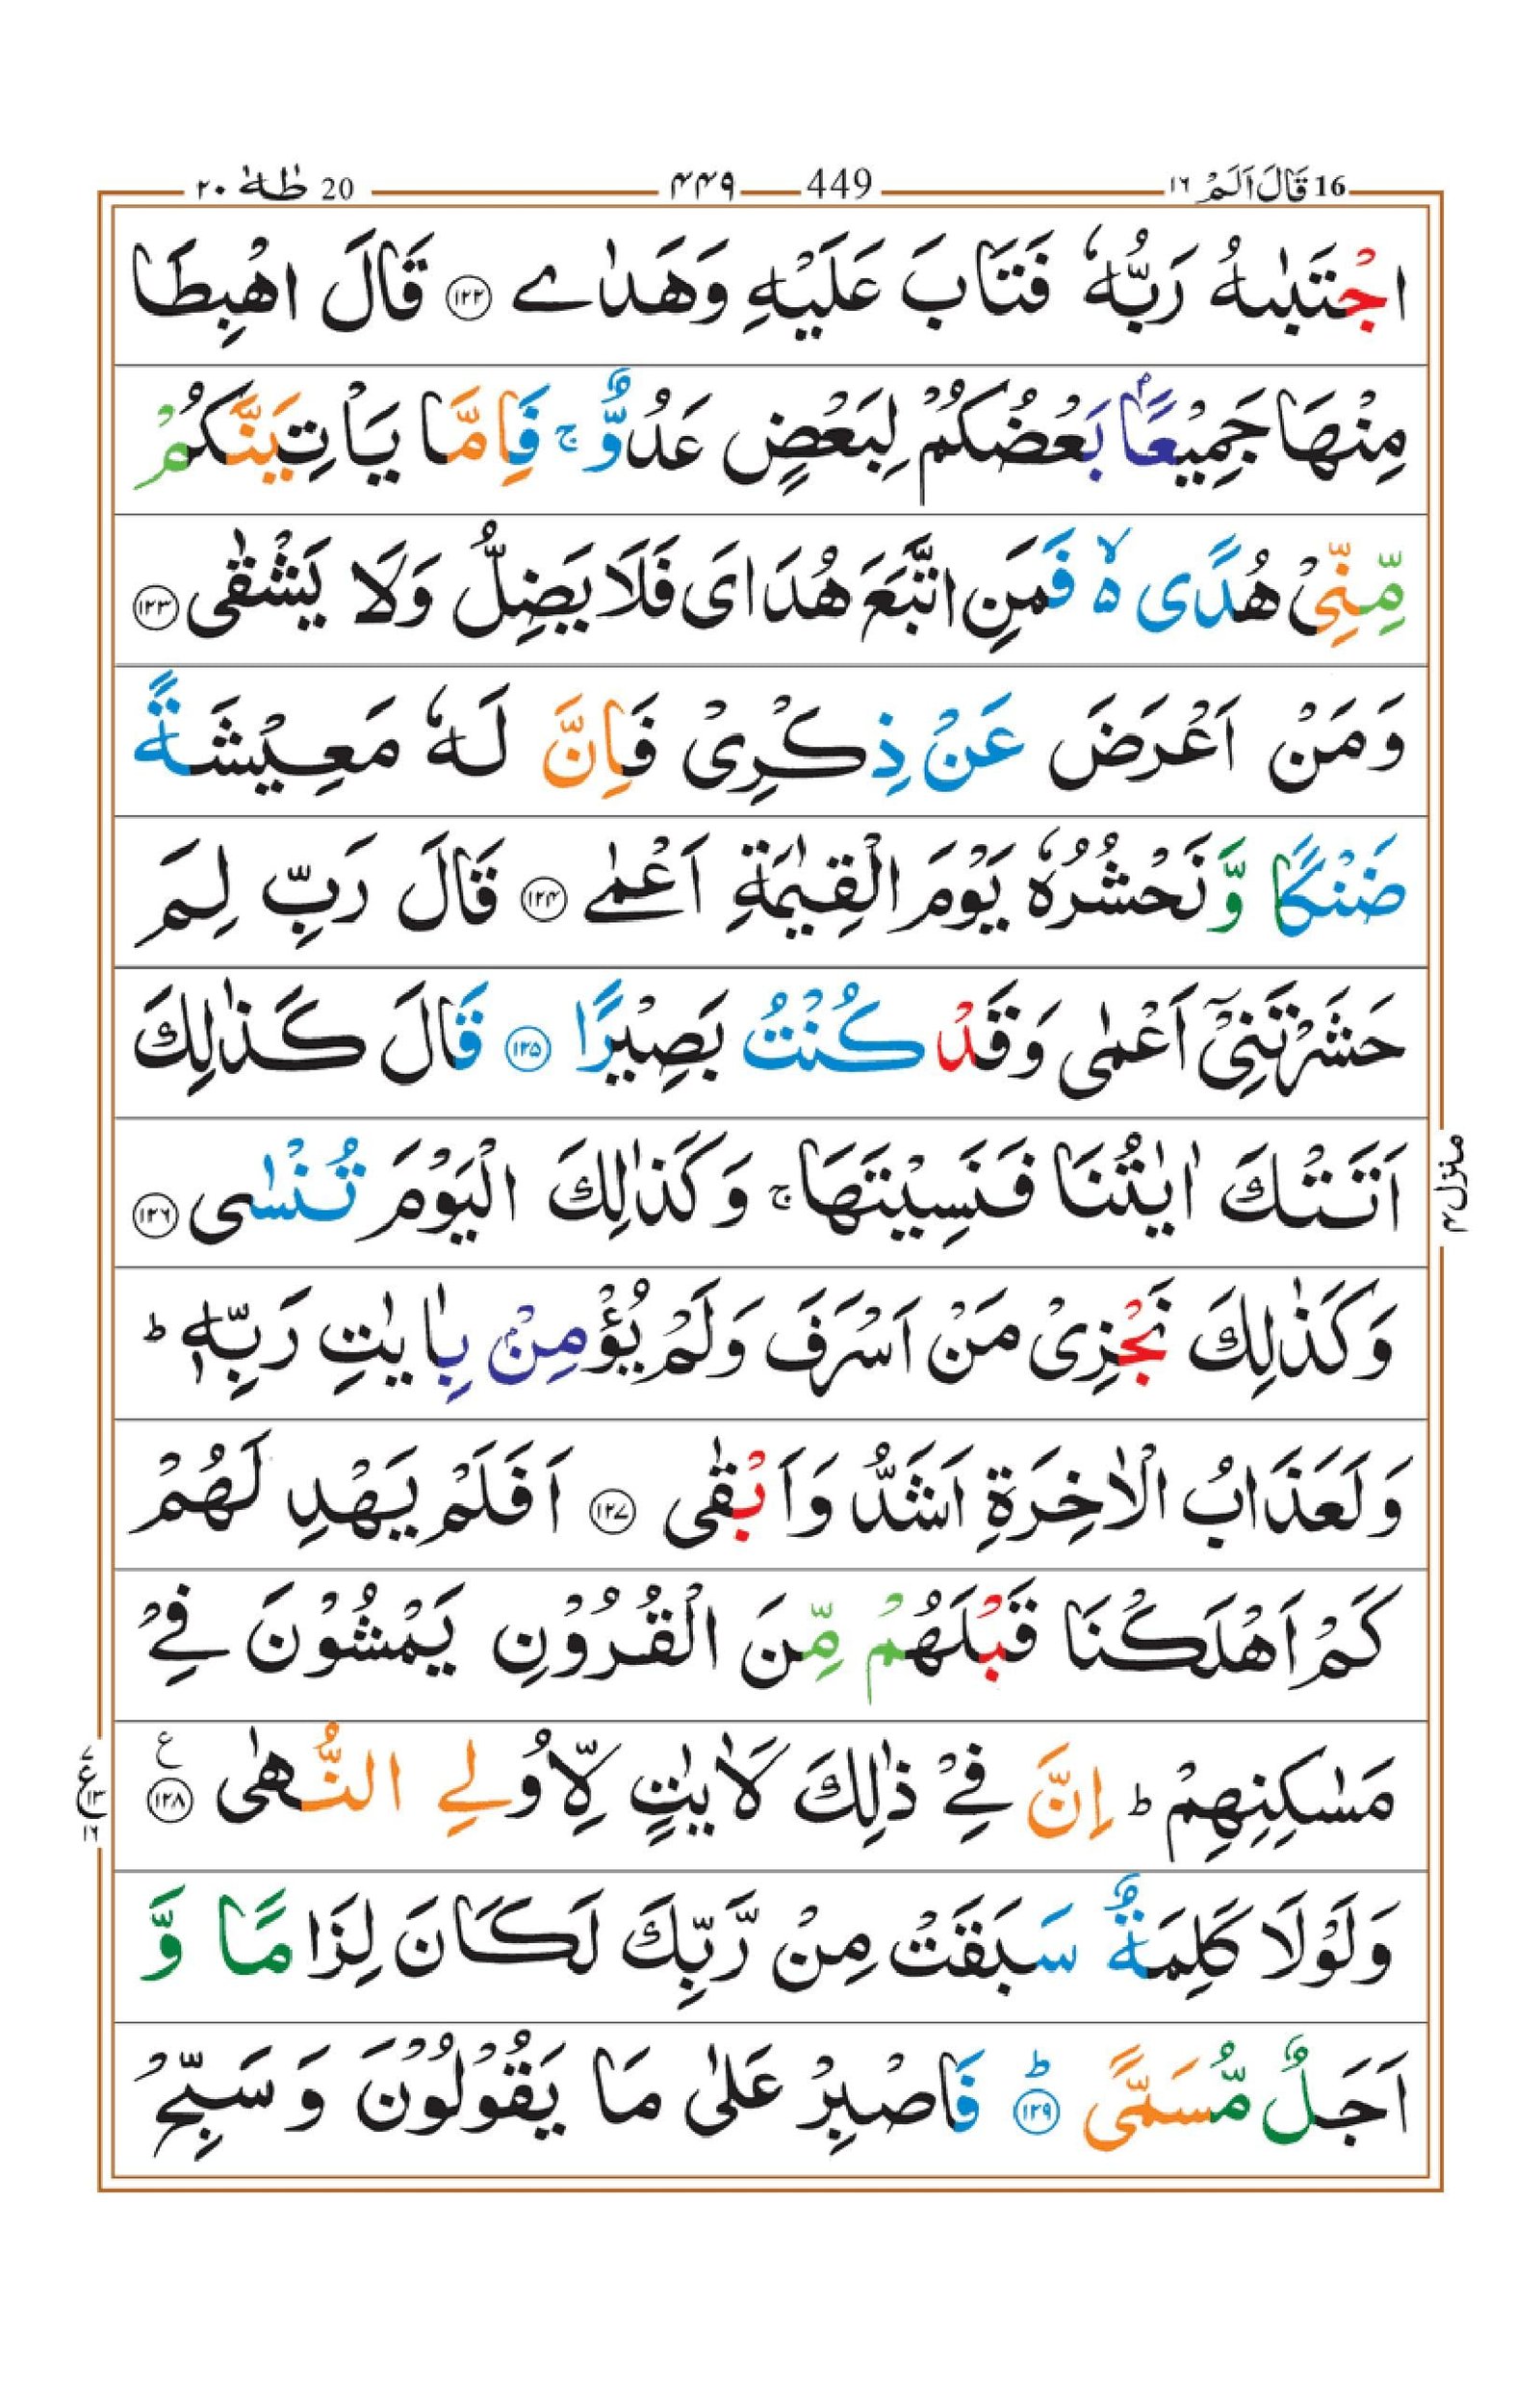 16 قَالَ اَلَمْ ١٦ 449 ۴۴۹ 20 طٰهٰ ۲۰
اجْتَبٰىهُ رَبُّهٗ فَتَابَ عَلَيْهِ وَهَدٰى ۝۱۲۲ قَالَ اهْبِطَا
مِنْهَا جَمِيْعًاۢ بَعْضُكُمْ لِبَعْضٍ عَدُوٌّ ۚ فَاِمَّا يَاْتِيَنَّكُمْ
مِّنِّيْ هُدًى ۙ۬ فَمَنِ اتَّبَعَ هُدَايَ فَلَا يَضِلُّ وَلَا يَشْقٰى ۝۱۲۳
وَمَنْ اَعْرَضَ عَنْ ذِكْرِيْ فَاِنَّ لَهٗ مَعِيْشَةً
ضَنْكًا وَّنَحْشُرُهٗ يَوْمَ الْقِيٰمَةِ اَعْمٰى ۝۱۲۴ قَالَ رَبِّ لِمَ
حَشَرْتَنِيْٓ اَعْمٰى وَقَدْ كُنْتُ بَصِيْرًا ۝۱۲۵ قَالَ كَذٰلِكَ
اَتَتْكَ اٰيٰتُنَا فَنَسِيْتَهَا ۚ وَكَذٰلِكَ الْيَوْمَ تُنْسٰى ۝۱۲۶
وَكَذٰلِكَ نَجْزِيْ مَنْ اَسْرَفَ وَلَمْ يُؤْمِنْۢ بِاٰيٰتِ رَبِّهٖ ؕ
وَلَعَذَابُ الْاٰخِرَةِ اَشَدُّ وَاَبْقٰى ۝۱۲۷ اَفَلَمْ يَهْدِ لَهُمْ
كَمْ اَهْلَكْنَا قَبْلَهُمْ مِّنَ الْقُرُوْنِ يَمْشُوْنَ فِيْ
مَسٰكِنِهِمْ ؕ اِنَّ فِيْ ذٰلِكَ لَاٰيٰتٍ لِّاُولِي النُّهٰى ۝۱۲۸ ع
وَلَوْلَا كَلِمَةٌ سَبَقَتْ مِنْ رَّبِّكَ لَكَانَ لِزَامًا وَّ
اَجَلٌ مُّسَمًّى ؕ۝۱۲۹ فَاصْبِرْ عَلٰى مَا يَقُوْلُوْنَ وَسَبِّحْ
منزل ۴
۷ ع ۱۳ ۱٦